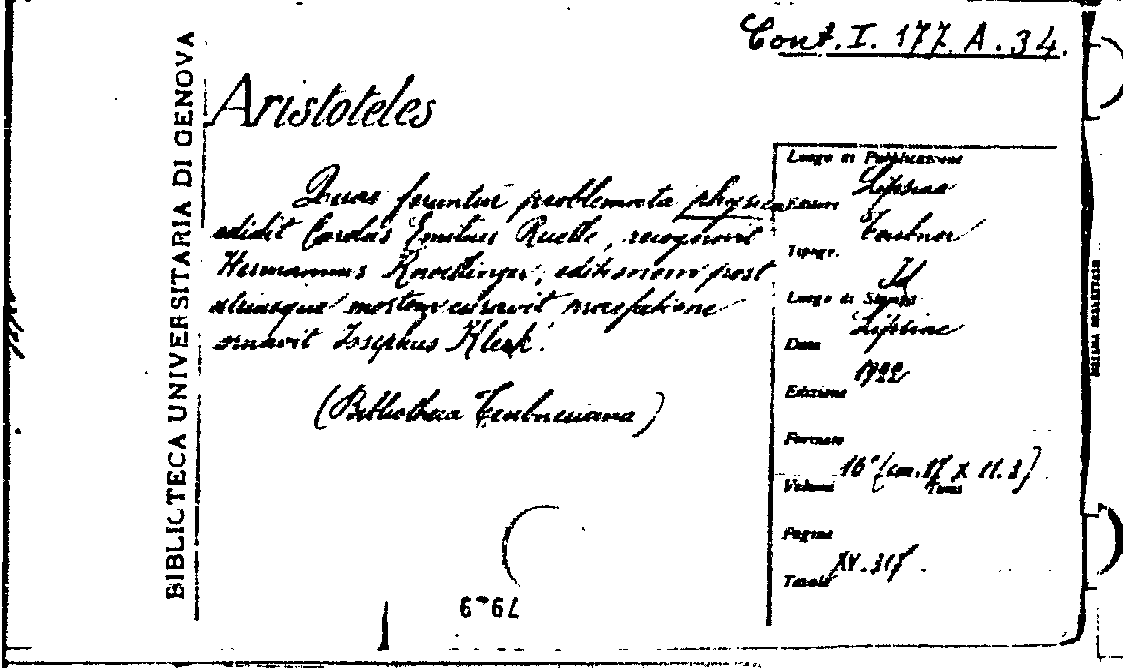 Cont. I. 177. A. 34.
BIBLIOTECA UNIVERSITARIA DI GENOVA
Aristoteles
Quae feruntur problemata physica
edidit Carolus Emilius Ruelle, recognovit
Hermannus Knoellinger, editionem post
utriusque mortem curavit praefatione
ornavit Josephus Klek.
(Bibliotheca Teubneriana)
Luogo di Pubblicazione
Lipsiae
Editore
Teubner
Tipogr.
Id
Luogo di Stampa
Lipsiae
Data
1922
Edizione
Formato
16° (cm. 17 x 11.3)
Volumi Tomi
Pagine
XV. 317
Tavole